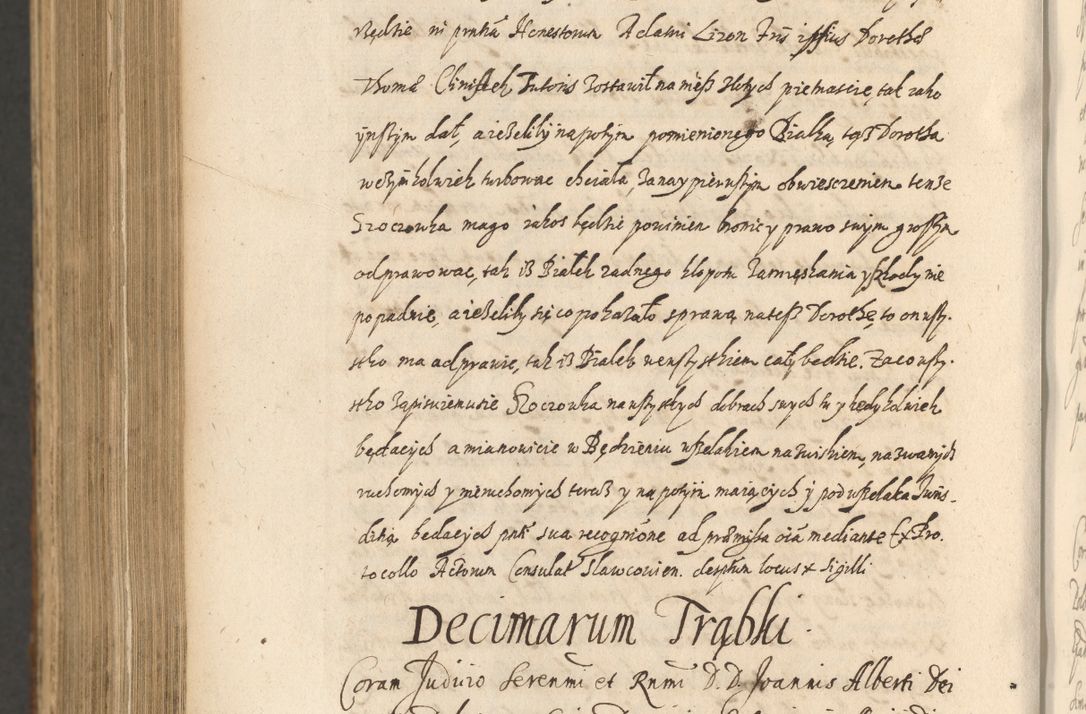 Będzie in prntia Honestorum Adami Lizon Fris ipsius Dorothæ
Thomæ Clinissek Tutoris zostawił na mięsc złotych piętnascie, tak zako
ynstym dał, a ieżeliby na potym pomienionego Białka, taż Dorotha
wczymkolwiek turbowac chciała za naypierwszym obwiesczeniem tenże
Szoczowka mago zakos będzie powinien bronic y prawo swym grossem
odprawowac, tak iż Białek zadnego kłopotu zamięskania y szkody nie
popadnie, a ieżeliby się co pokazało z prawa na tesz Dorothę, to on wszy-
stko ma odprawic, tak iż Białek we wszystkiem cały będzie. Za co wszy-
stko zapisuiemusie Szoczowka na wszystkych dobrach swych tu y kędykolwiek
będacych a mianowicie w Będzieniu wszelakiem nazwiskiem, nazwanych
ruchomych y nieruchomych teraz y na potym maiących y pod wszelaka Juris-
ditią bedacych pntr sua recognitione ad præmissa oia mediante Ex Pro-
tocollo Actorum Consulat Slawcovien. desptum locus x Sigilli
Decimarum Trąbki
Coram Judicio Serenmi et Rnmi D. D. Joannis Alberti Dei